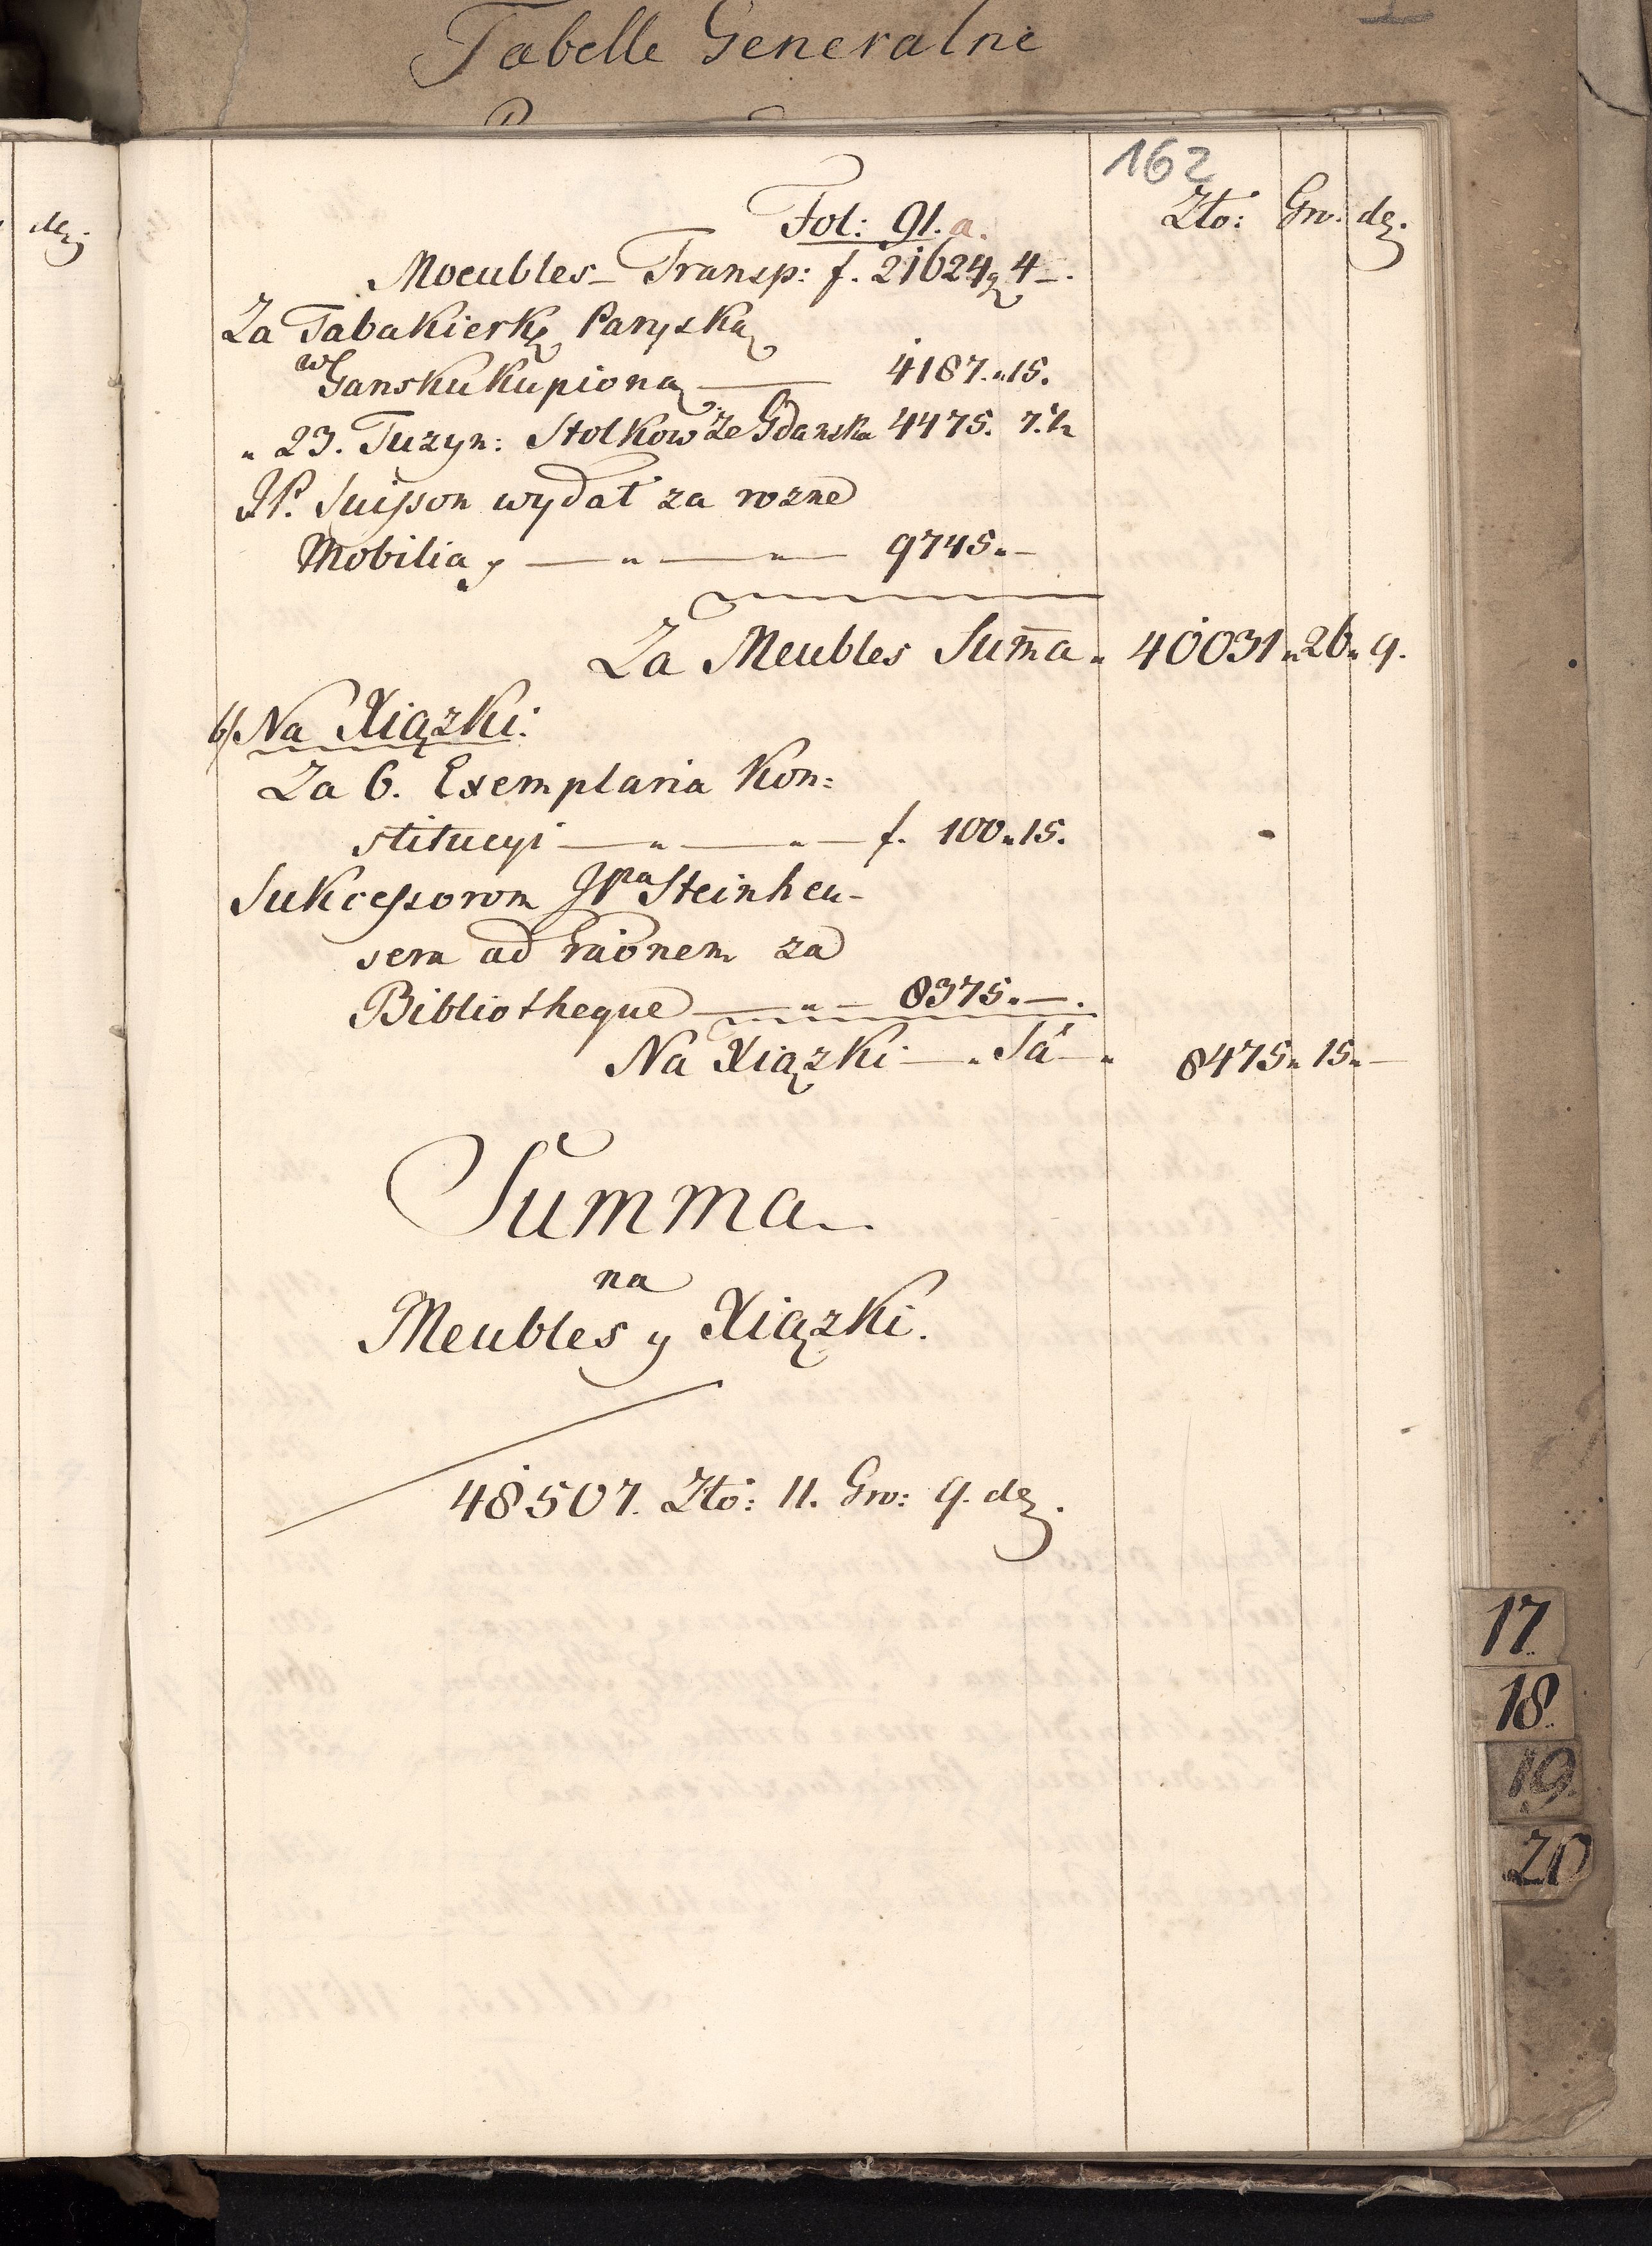 Tabelle Generalne
dez:
162
Zło: Gro: dez.
Fol: 91.a.
Moeubles_ Transp: f. 21624„ 4_.
Za Tabakierkę Paryską
w Gansku kupioną — 4187.„15.
„ 23. Tuzyn: Stolkow ze Gdanska 4475. 7.½
JP. Suisson wydał za rozne
Mobilia, — „ — „ — 9745.„–
Za Meubles Sum̄a„ 40031„26„ 9.
b/ Na Xiązki:
Za 6. Exemplaria Kon:
stitucyi — „ — „ — f. 100„15.
Sukcessorom JPa Steinheu-
sera ad raõnem za
Bibliotheque — „ — 8375.–.
Na Xiązki — „ Sā — „ 8475„ 15„–
Summa_.
na
Meubles y Xiązki.
48507. Zło: 11. Gro: 9. dez.
17.
18.
19.
20